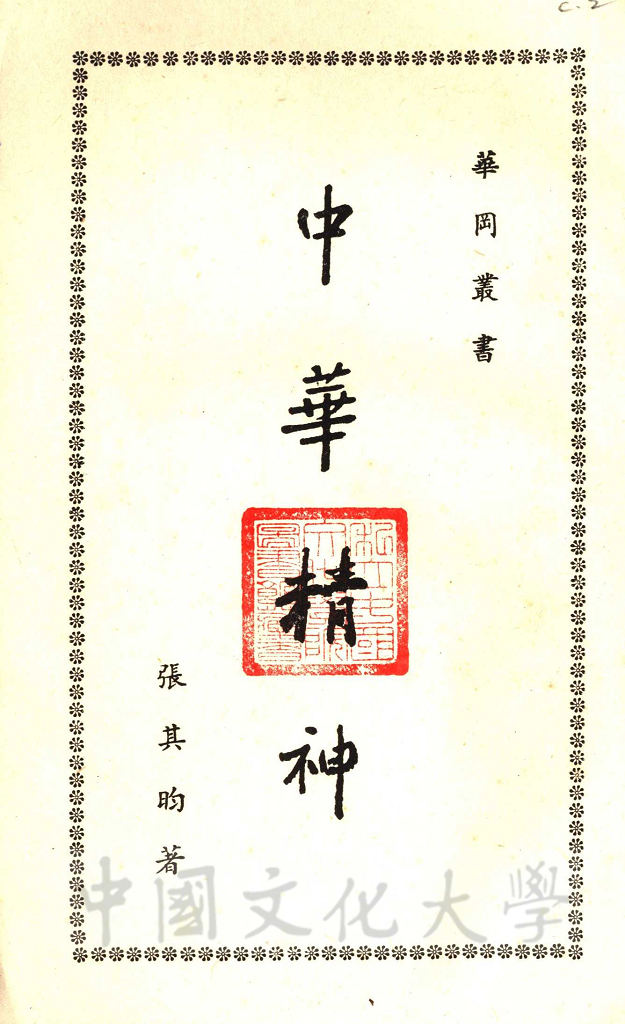 C.2
華岡叢書
中華精神
張其昀著
中國文化大學